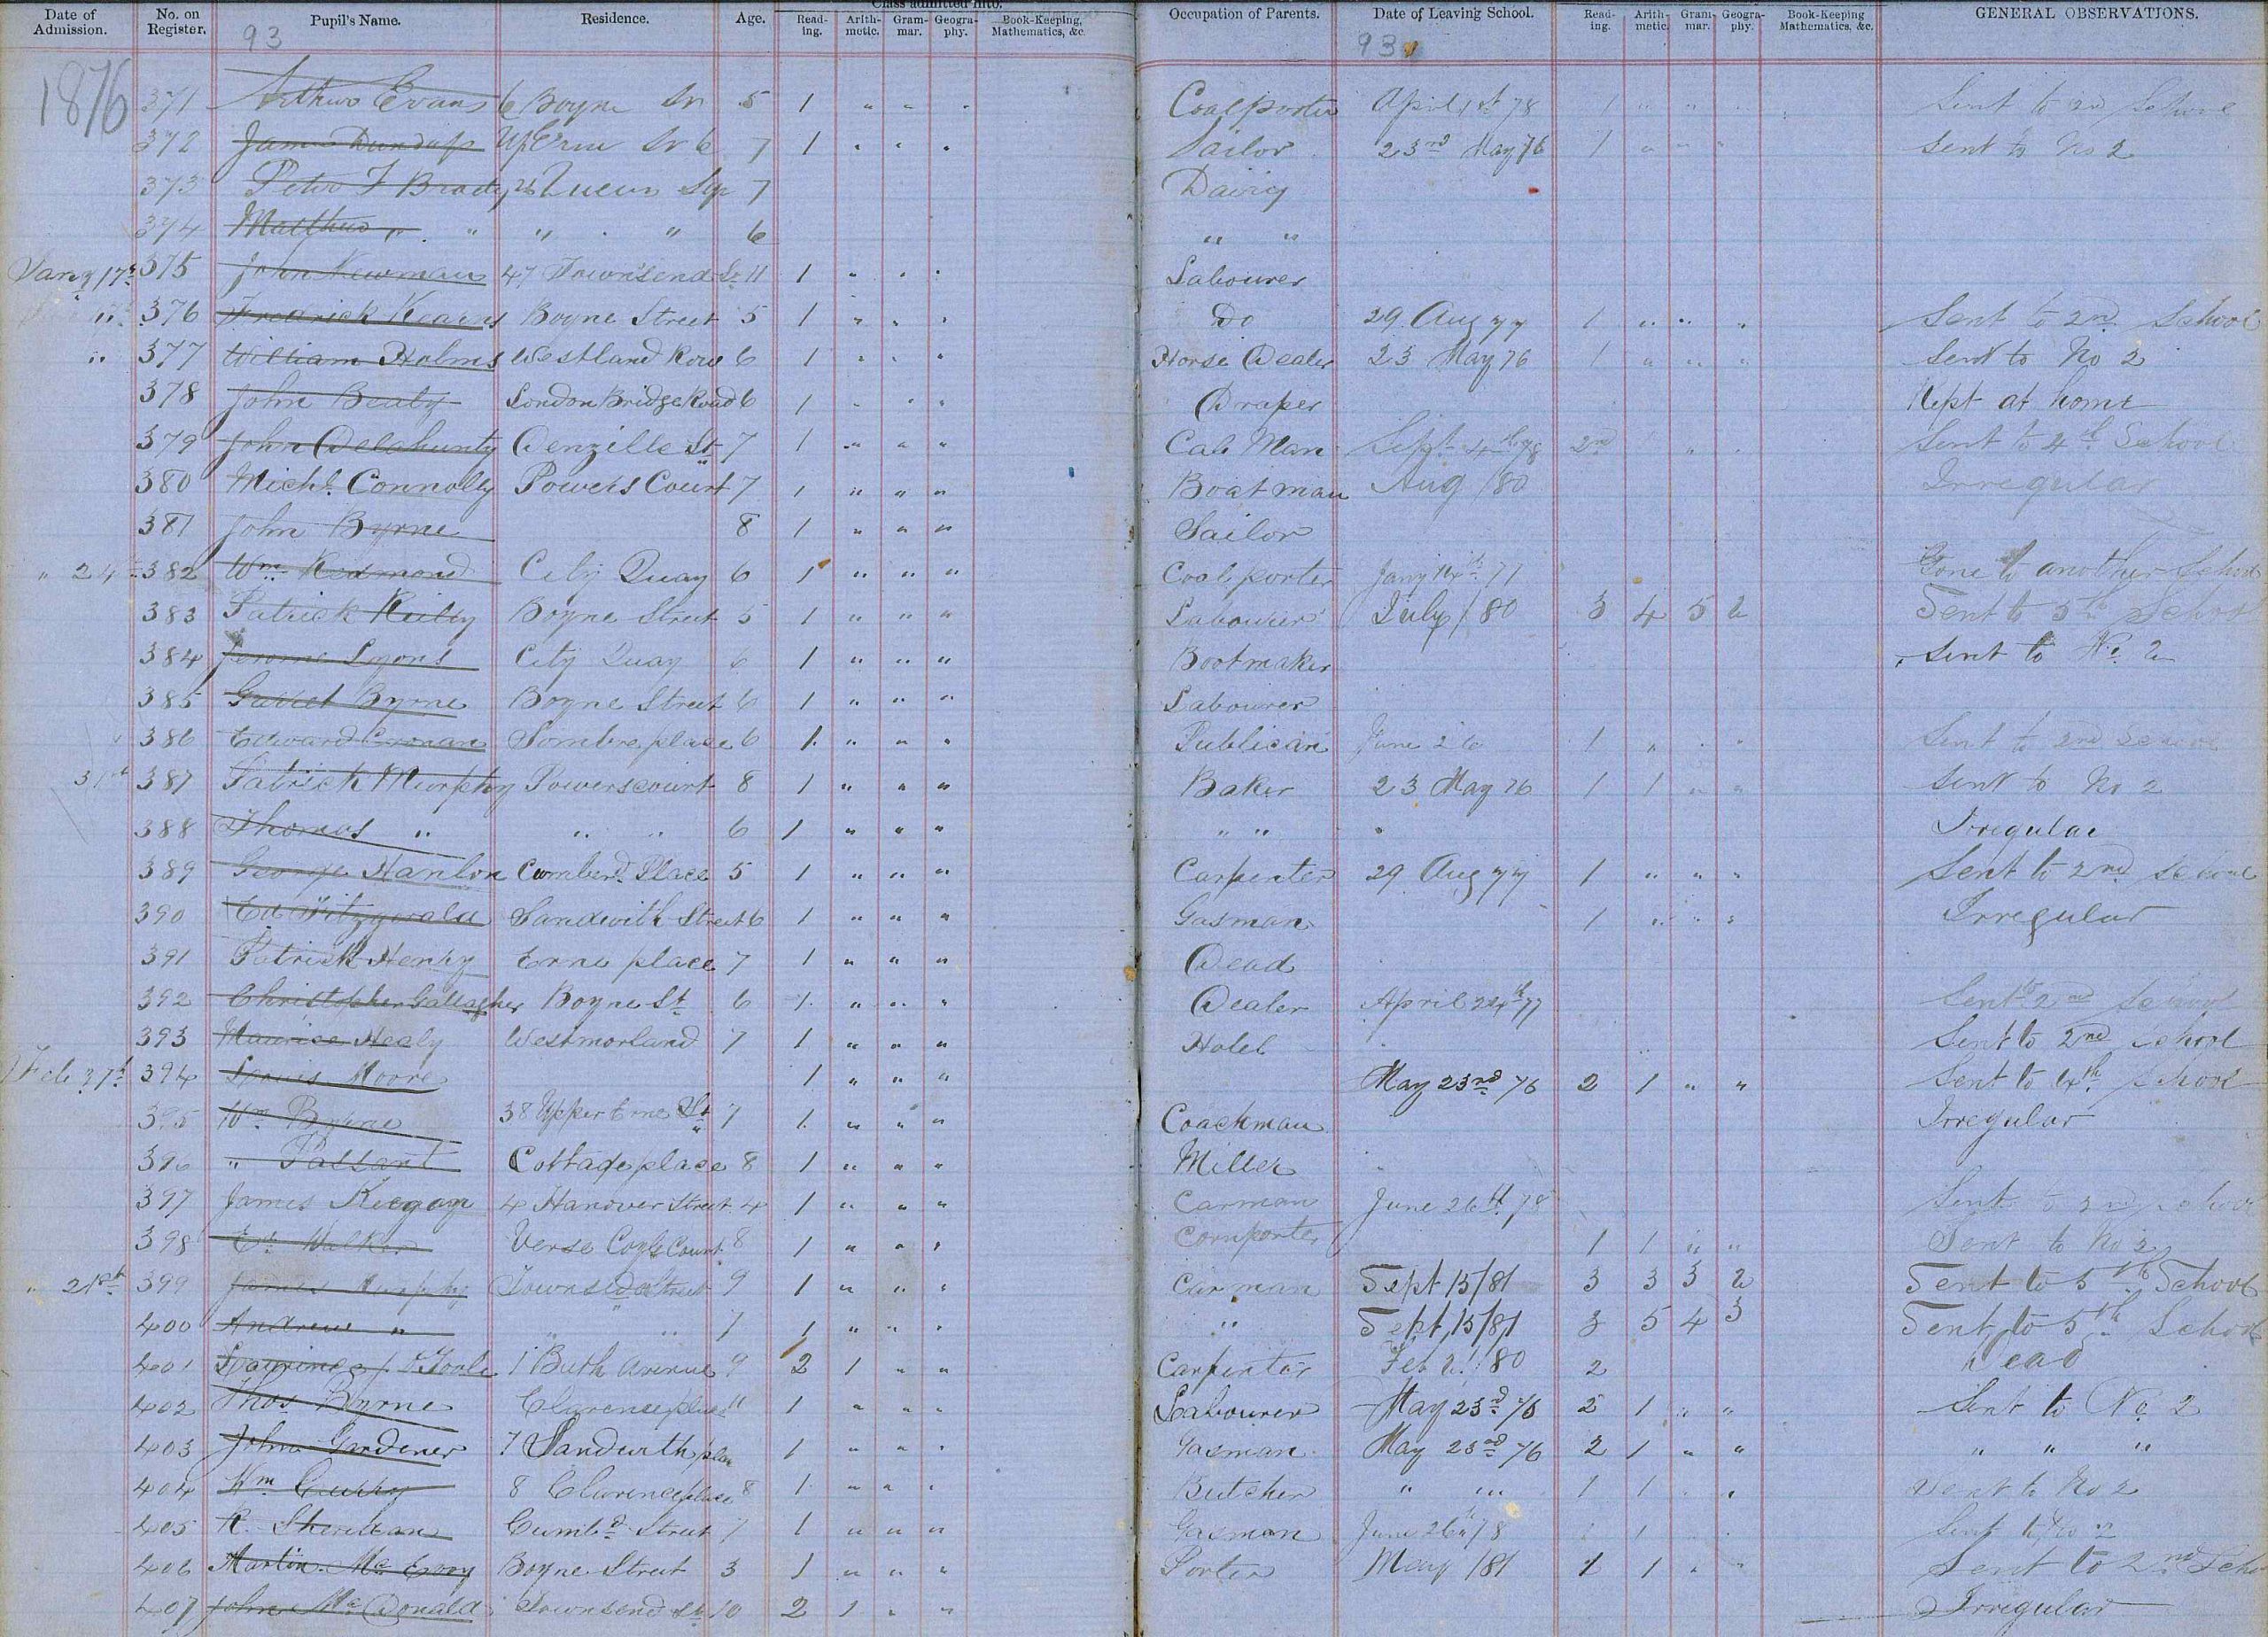 Date of Admission. No. on Register. Pupil's Name. Residence. Age. Class admitted into. Read-ing. Arith-metic. Gram-mar. Geogra-phy. Book-Keeping, Mathematics, &c. Occupation of Parents. Date of Leaving School. Read-ing. Arith-metic. Gram-mar. Geogra-phy. Book-Keeping Mathematics, &c. GENERAL OBSERVATIONS.
93 93
1876 371 Arthur Evans 6 Boyne St 5 1 " " " Coalporter April 1st 78 1 " " " Sent to 2nd School
372 James Dundass Up Erne St 6 7 1 " " " Sailor 23rd May 76 1 " " " Sent to No 2
373 Peter F Brady 26 Queen Sqr 7 Dairy
374 Matthew " " " " 6 " "
Jany 17th 375 John Newman 47 Townsend St 11 1 " " " Labourer
" 376 Fredrick Kearns Boyne Street 5 1 " " " Do 29 Aug 77 1 " " " Sent to 2nd School
" 377 William Holms Westland Row 6 1 " " " Horse Dealer 23 May 76 1 " " " Sent to No 2
378 John Beaty London Bridge Road 6 1 " " " Draper Kept at home
379 John Delahunty Denzille St 7 1 " " " Cab Man Sept 4th 78 2nd " " Sent to 4th School
380 Michl. Connolly Powers Court 7 1 " " " Boatman Aug /80 Irregular
381 John Byrne 8 1 " " " Sailor
" 24th 382 Wm Redmond City Quay 6 1 " " " Coal porter Jany 14th 77 Gone to another School
383 Patrick Reilly Boyne Street 5 1 " " " Labourer July /80 3 4 5 2 Sent to 5th School
384 Jerome Lyons City Quay 6 1 " " " Bootmaker Sent to No. 2
385 Garret Byrne Boyne Street 6 1 " " " Labourer
386 Edward Cronan Sombre place 6 1 " " " Publican June 26 1 " " " Sent to 2nd School
31st 387 Patrick Murphy Powerscourt 8 1 " " " Baker 23 May 76 1 1 " " Sent to No 2
388 Thomas " " " 6 1 " " " " " Irregular
389 George Hanlon Cumberd. Place 5 1 " " " Carpenter 29 Aug 77 1 " " " Sent to 2nd School
390 Ed Fitzgerald Sandwith Street 6 1 " " " Gasman 1 " " " Irregular
391 Patrick Henry Erne place 7 1 " " " Dead
392 Christopher Gallagher Boyne St 6 1 " " " Dealer April 24th 77 Sent to 2nd School
393 Maurice Healy Westmorland 7 1 " " " Hotel Sent to 2nd School
Feb 394 Louis Moore 1 " " " May 23rd 76 2 1 " " Sent to 4th School
395 Wm Byrne 38 Upper Erne St 7 1 " " " Coachman Irregular
396 " Pallant Cottage place 8 1 " " " Miller
397 James Keegan 4 Hanover Street 4 1 " " " Carman June 26th 78 Sent to 2nd School
398 Ed. Walker Verse Court 8 1 " " " Cornporter 1 1 " " Sent to No 2
" 21st 399 James Murphy Townsend Street 9 1 " " " Carman Sept 15/81 3 3 3 2 Sent to 5th School
400 Andrew " " " 7 1 " " " " Sept 15/81 3 5 4 3 Sent to 5th School
401 O'Toole 1 Buth Avenue 9 2 1 " " Carpenter Feb 2 /80 2 Dead
402 Thos Byrne Clarence place 11 1 " " " Labourer May 23rd 76 2 1 " " Sent to No. 2
403 John Gardener 7 Sandwith place 1 " " " Gasman May 23rd 76 2 1 " " " " "
404 Wm 8 Clarence place 8 1 " " " Butcher " " 1 1 " " Sent to No 2
405 R. Sheridan Cumbd Street 7 1 " " " Gasman June 26th 78 1 1 Sent to No 2
406 Martin McEvoy Boyne Street 3 1 " " " Porter May /81 1 1 " " Sent to 2nd Scho
407 John McDonald Townsend St 10 2 1 " " Irregular